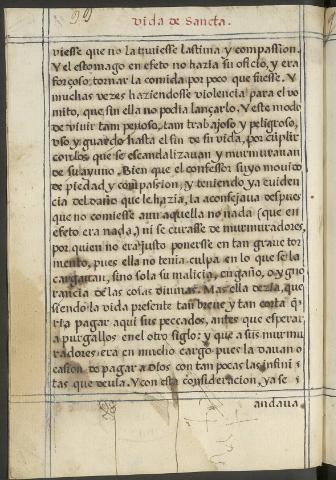 99
vida de Sancta.
viesse que no la tuuiesse lastima y compassion.
Y el estomago en efeto no hazia su oficio, y era
forçoso tornar la comida por poco que fuesse. Y
muchas vezes haziendosse violencia para el vo
mito, que sin ella no podia lançarlo. Y este modo
de viuir tam penoso, tam trabajoso y peligroso,
vso y guardo hasta el fin de su vida, por cũplir
con los que se escandalizauan y murmurauan
de su ayuno. Bien que el confessor suyo mouido
de piedad y compasion, y teniendo ya euiden
cia del daño que le hazia, la aconsejaua despues
que no comiesse aun aquella no nada (que en
efeto era nada,) ni se curasse de murmuradores,
por quien no era justo ponerse en tan graue tor
mento, pues ella no tenia culpa en lo que se la
cargauan, sino sola su malicia, engaño, o ygno
rancia de las cosas diuinas. Mas ella dezia, que
siendo la vida presente tan breue y tan corta q̃
ria pagar aqui sus peccados, antes que esperar
a purgallos en el otro siglo: y que a sus murmu
radores era en mucho cargo pues la dauan o
casion de pagar a Dios con tan pocas las infini
tas que deuia. Y con esta consideracion, ya se i
andaua